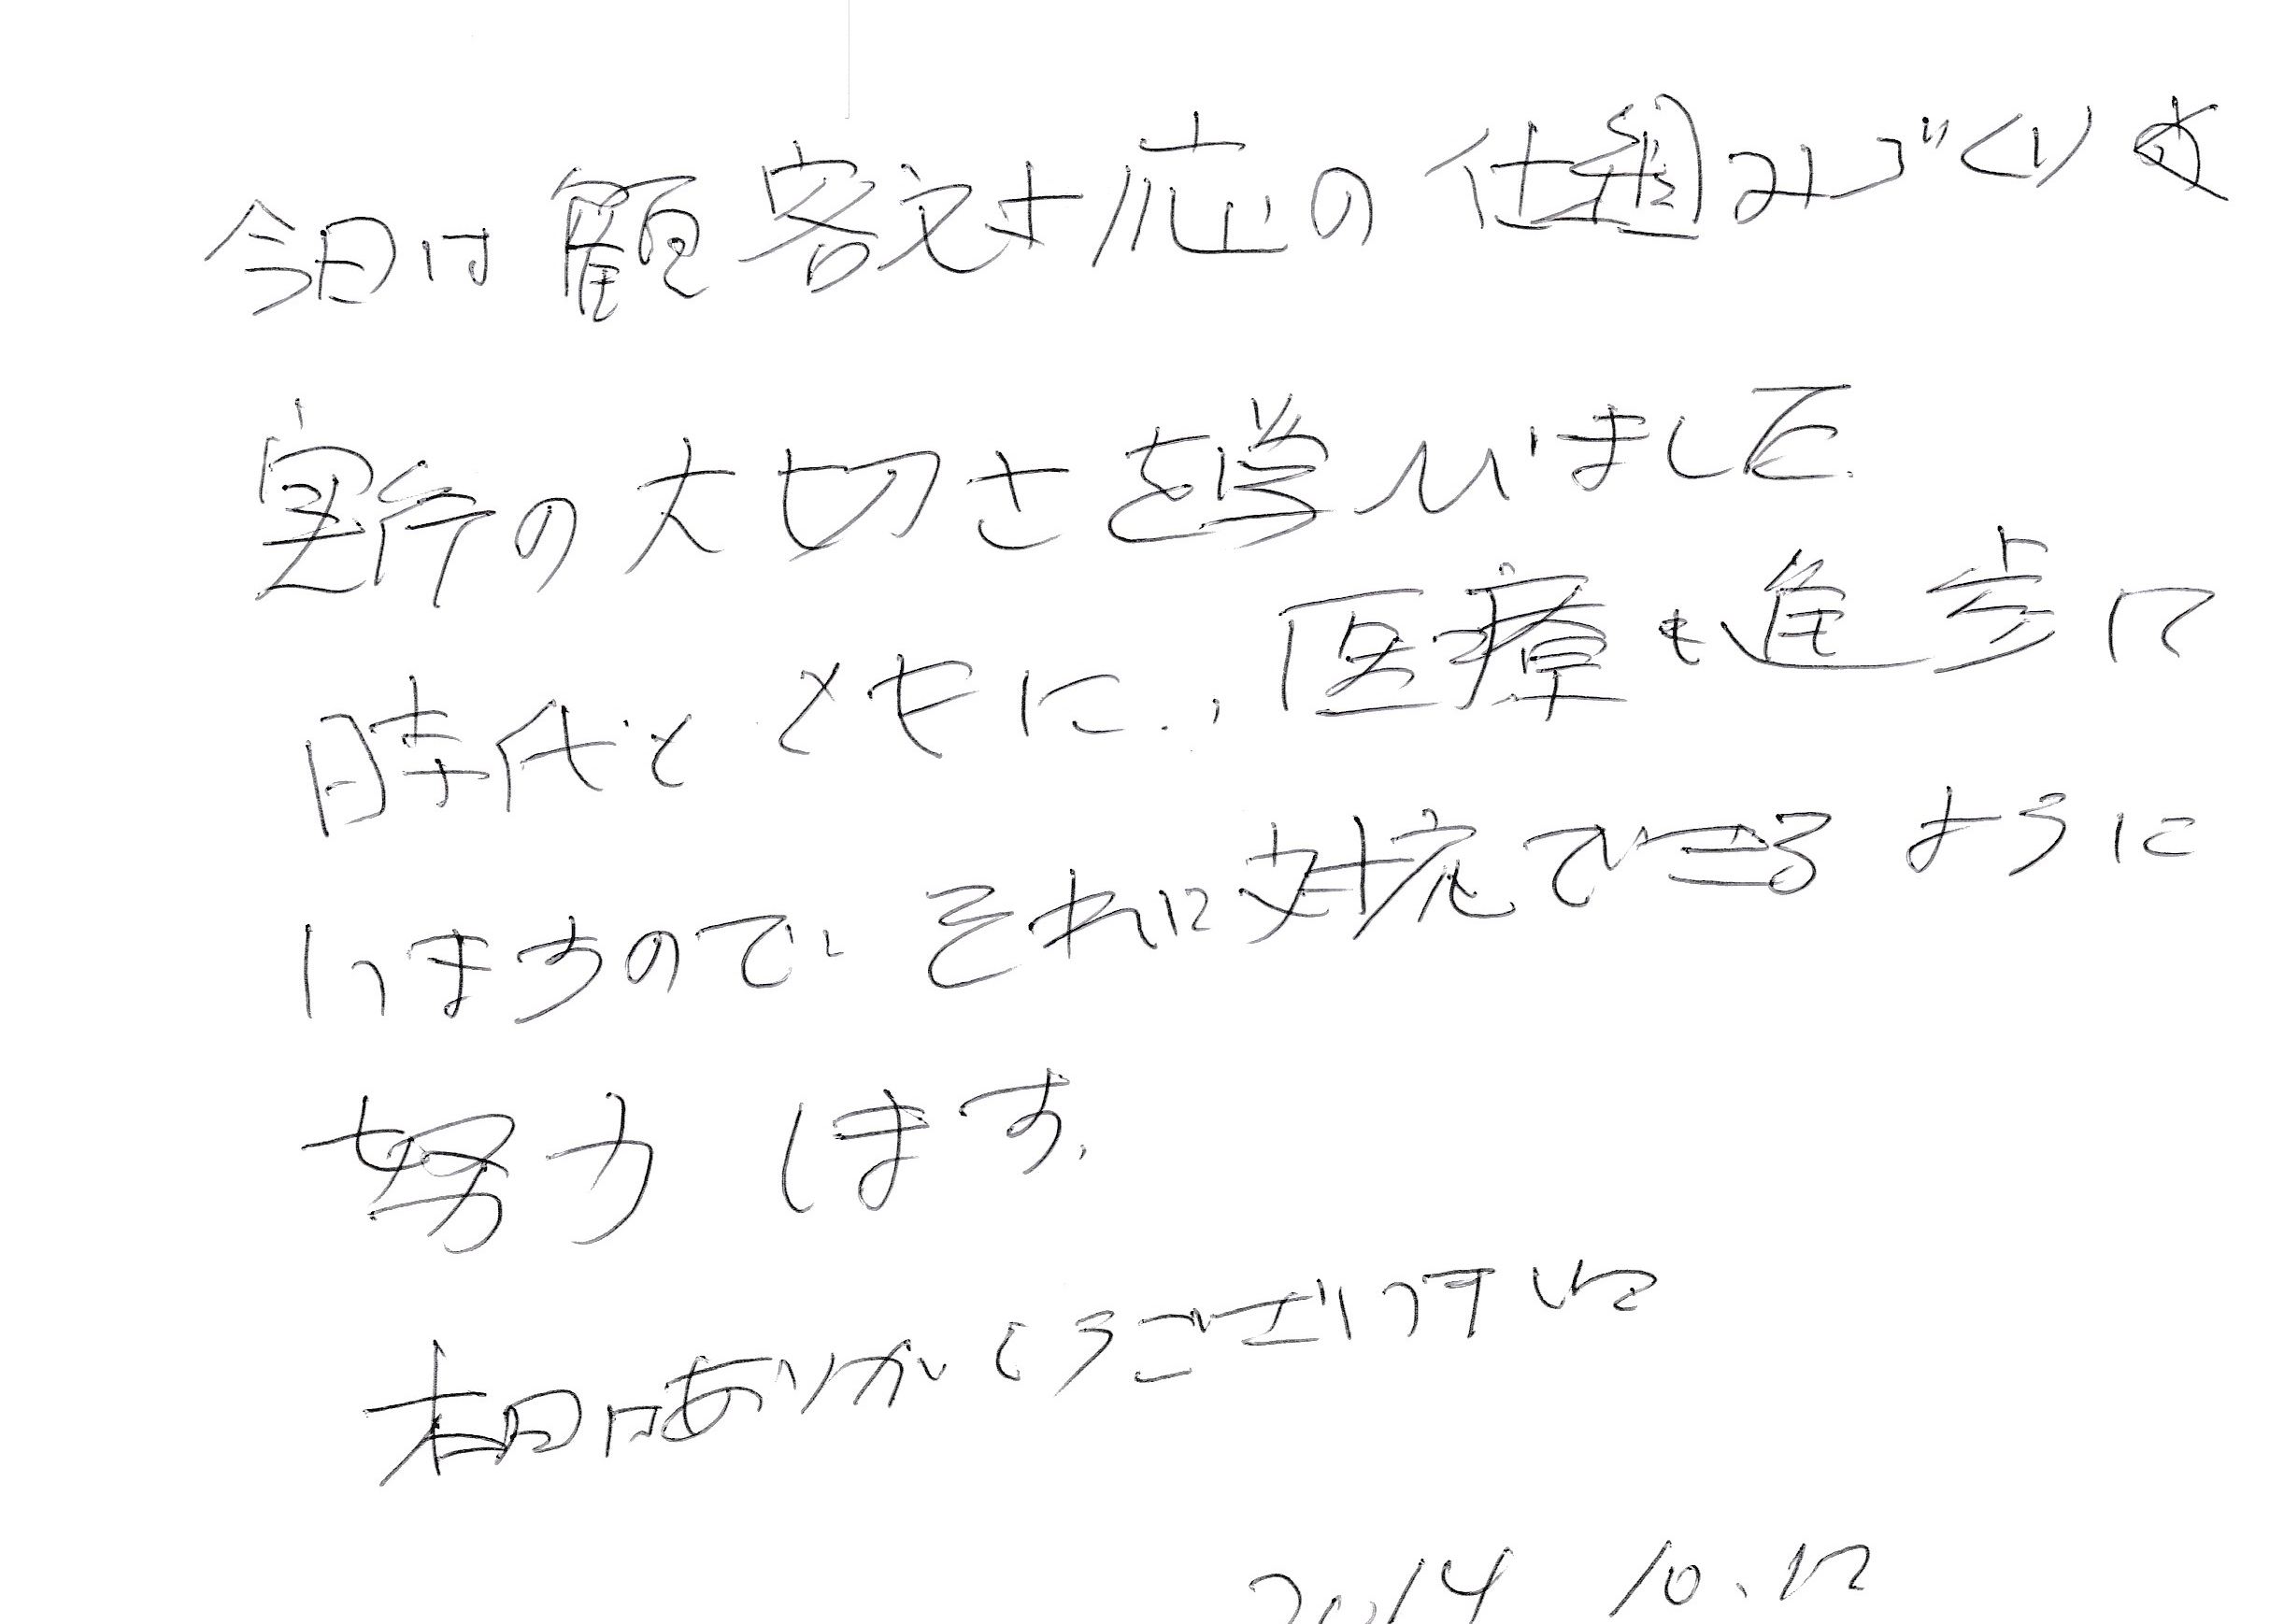 今日は観客対応の仕組みづくりや
実行の大切さを学びました。
時代とともに、医療も進歩して
いますので、それに対応できるように
努力します。
本日はありがとうございました
2014 10.12